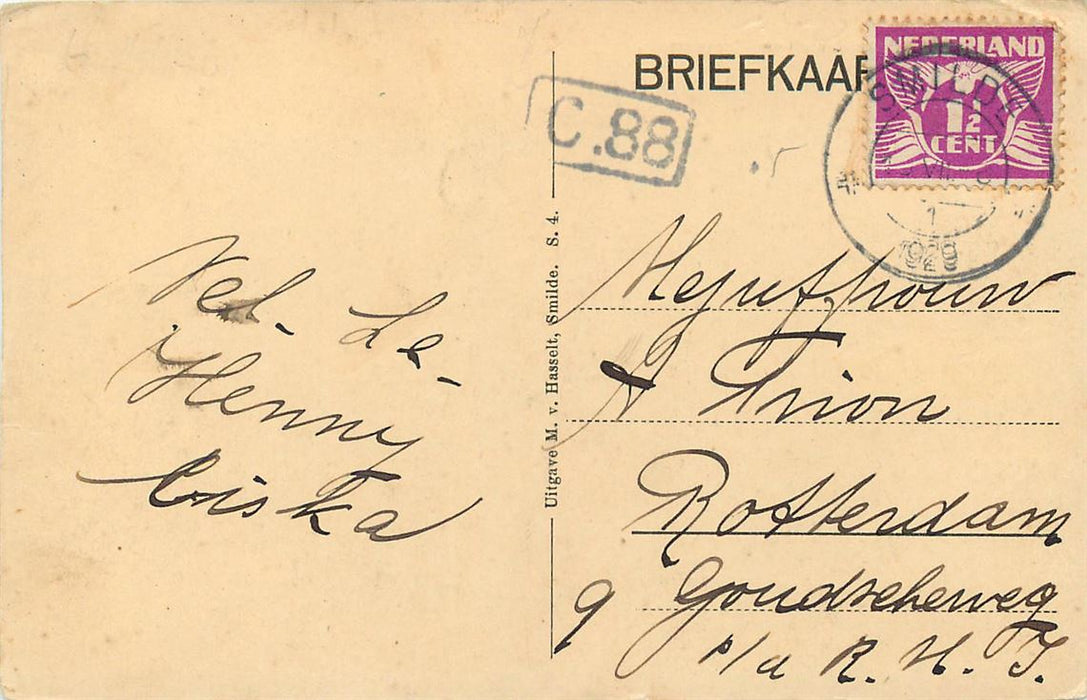 BRIEFKAAR
NEDERLAND
1½
CENT
SMILDE
1
1928
C.88
Uitgave M. v. Hasselt, Smilde. S. 4.
Vel. La-
Henny
Ciska
Mejuffrouw
J Trion
Rotterdam
9 Goudscheweg
p/a R. H. J.